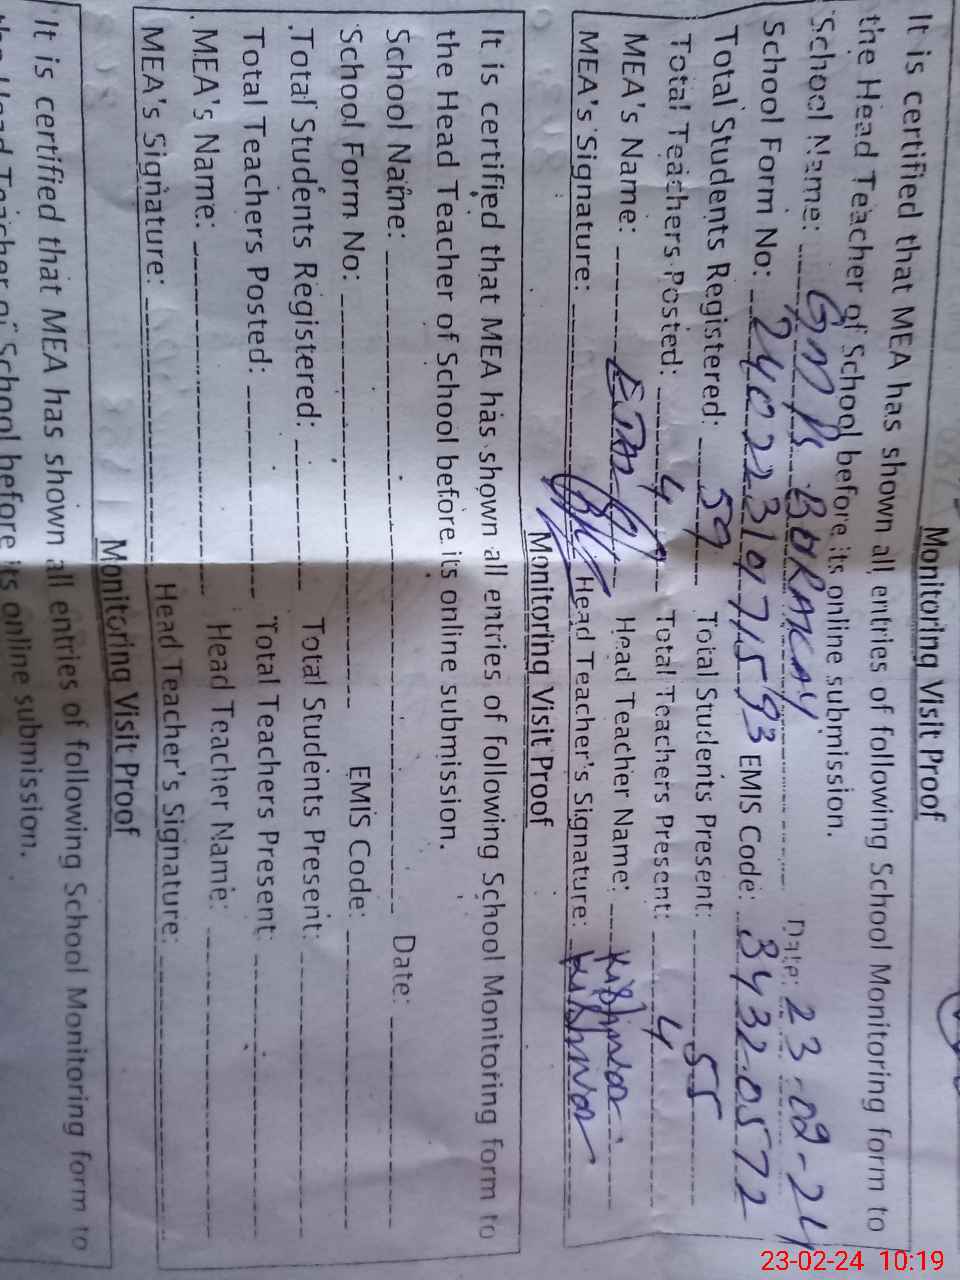 Monitoring Visit Proof
It is certified that MEA has shown all entries of following School Monitoring form to
the Head Teacher of School before its online submission.
School Name: GMPS BORANCAY Date: 23-02-24
School Form No: 24022310971593 EMIS Code: 34320572
Total Students Registered: 59 Total Students Present: 55
Total Teachers Posted: 4 Total Teachers Present: 4
MEA's Name: Head Teacher Name: Kishwar
MEA's Signature: Head Teacher's Signature: Kishwar
Monitoring Visit Proof
It is certified that MEA has shown all entries of following School Monitoring form to
the Head Teacher of School before its online submission.
School Name: Date:
School Form No: EMIS Code:
Total Students Registered: Total Students Present:
Total Teachers Posted: Total Teachers Present:
MEA's Name: Head Teacher Name:
MEA's Signature: Head Teacher's Signature:
Monitoring Visit Proof
It is certified that MEA has shown all entries of following School Monitoring form to
the Head Teacher of School before its online submission.
23-02-24 10:19